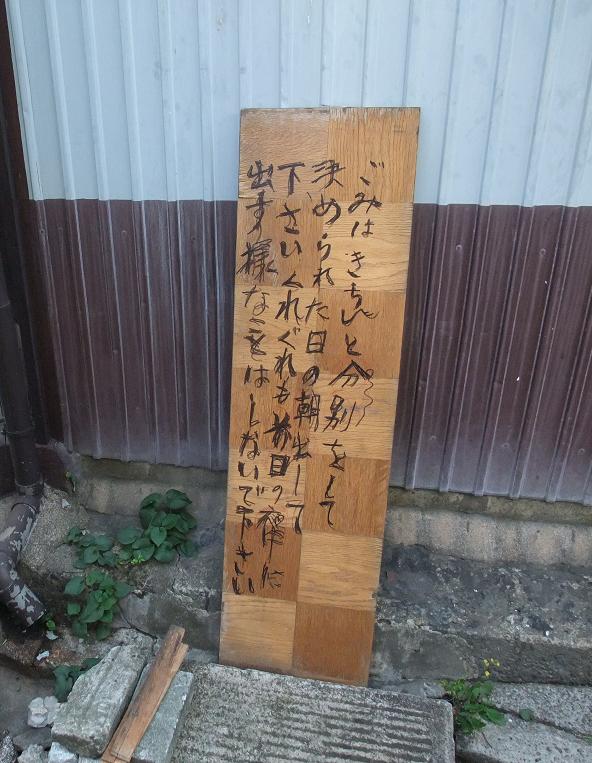 ごみはきちんと分別をして
決められた日の朝出して
下さいくれぐれも前日の夜中に
出す様なことはしないで下さい